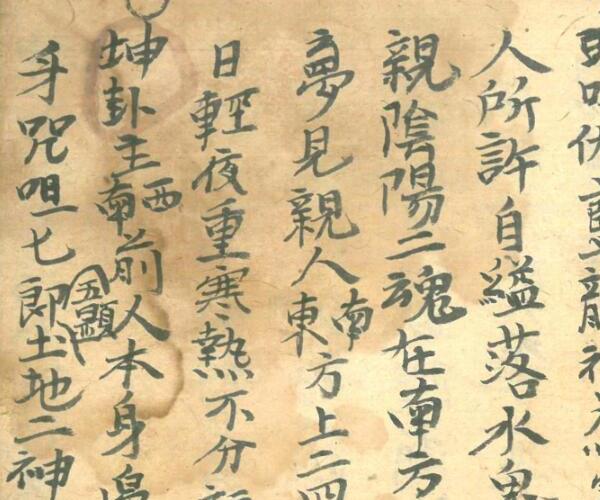 伏
龍神
人所許自縊落水鬼
親陰陽二魂在南方
夢見親人東南方上二四
日輕夜重寒熱不分
坤卦主南西前人本身
身咒咀七郎土地二神
五顯